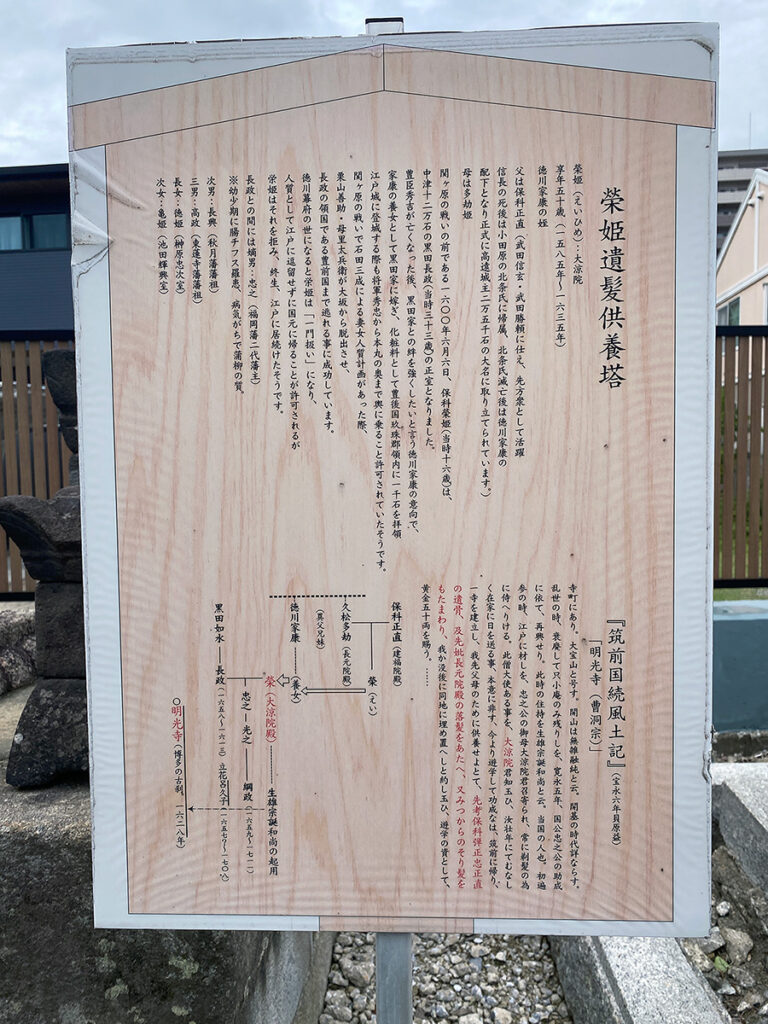 榮姫遺髪供養塔
榮姫（えいひめ）：大涼院
享年五十歳（一五八五年～一六三五年）
徳川家康の姪
父は保科正直（武田信玄・武田勝頼に仕え、先方衆として活躍
信長の死後は小田原の北条氏に帰属、北条氏滅亡後は徳川家康の
配下となり正式に高遠城主二万五千石の大名に取り立てられています。）
母は多劫姫
関ヶ原の戦いの前である一六〇〇年六月六日、保科榮姫（当時十六歳）は、
中津十二万石の黒田長政（当時三十三歳）の正室となりました。
豊臣秀吉が亡くなった後、黒田家との絆を強くしたいと言う徳川家康の意向で、
家康の養女として黒田家に嫁ぎ、化粧料として豊後国玖珠郡領内に一千石を拝領
江戸城に登城する際も将軍秀忠から本丸の奥まで輿に乗ること許可されていたそうです。
関ヶ原の戦いで石田三成による妻女人質計画があった際、
栗山善助・母里太兵衛が大坂から脱出させ、
長政の領国である豊前国まで逃れる事に成功しています。
徳川幕府の世になると栄姫は「一門扱い」になり、
人質として江戸に逗留せずに国元に帰ることが許可されるが
栄姫はそれを拒み、終生、江戸に居続けたそうです。
長政との間には嫡男：忠之（福岡藩二代藩主）
※幼少期に腸チフス罹患、病気がちで蒲柳の質。
次男：長興（秋月藩藩祖）
三男：高政（東蓮寺藩藩祖）
長女：徳姫（榊原忠次室）
次女：亀姫（池田輝興室）
『筑前国続風土記』（宝永六年貝原益）
「明光寺（曹洞宗）」
寺町にあり。大宝山と号す。開山は無雑融純と云。開基の時代詳ならす。
乱世の時、衰廃して只小庵のみ残りしを、寛永五年、国公忠之公の助成
に依て、再興せり。此時の住持を生雄宗誕和尚と云。当国の人也。初遍
参の時、江戸に材しを、忠之公の御母大涼院君召寄られ、常に剃髪の為
に侍へりける。此僧大使ある事を、大涼院君知玉ひ、汝壮年にてむなし
く在家に日を送る事、本意に非す、今より遊学して功成なは、筑前に帰り、
一寺を建立し、我先父母のために供養せよとて、先考保科弾正忠正直
の遺骨、及先妣長元院殿の落髪をあたへ、又みつからのそり髪を
もたまわり、我か没後に同地に埋め置へしと約し玉ひ、遊学の資として、
黄金五十両を賜う。……
保科正直（建福院殿）
榮（えい）
久松多劫（長元院殿）
（異父兄妹）
徳川家康
（養女）
榮（大涼院殿）
生雄宗誕和尚の起用
黒田如水
長政（一五六八～一六二三）
忠之
光之
綱政（一六五九～一七一一）
立花呂久子（一六五七？～一七〇九）
○明光寺（博多の古刹。一六二八年）